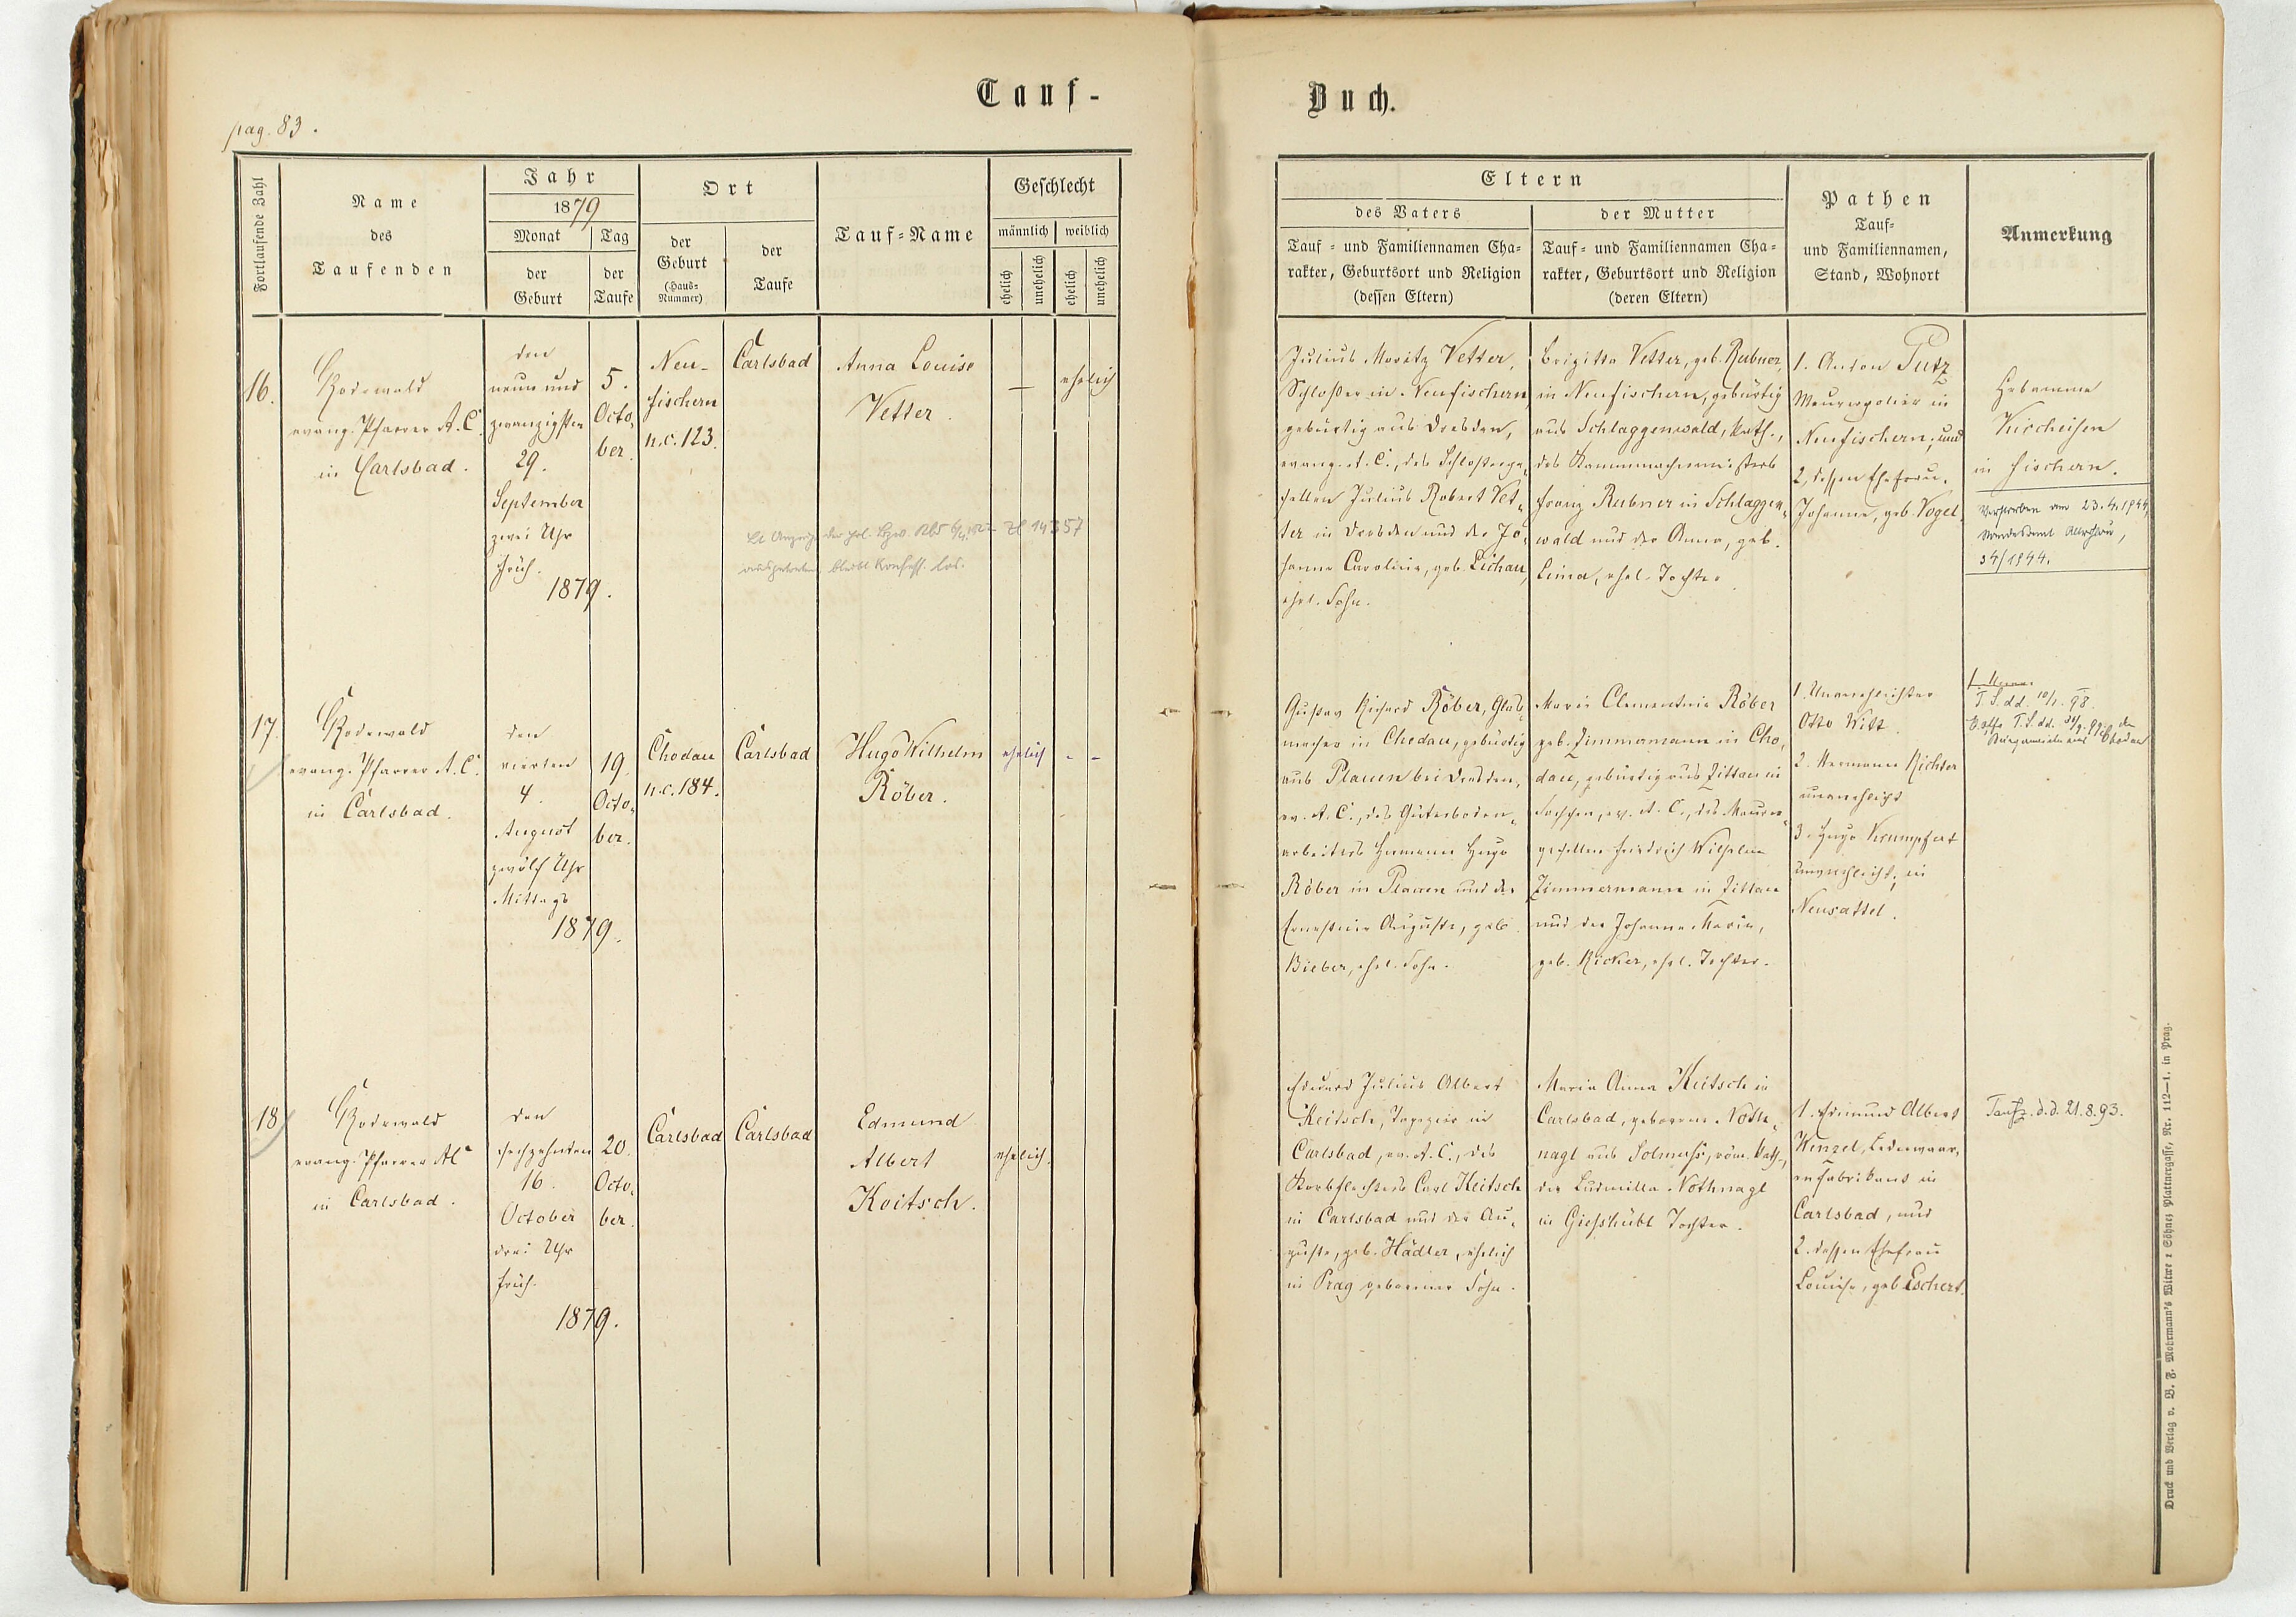 Tauf-
Buch.
pag. 83.
Fortlaufende Zahl
Name
des
Taufenden
Jahr
1879
Monat
der
Geburt
Tag
der
Taufe
Ort
der
Geburt
(Haus-
Nummer)
der
Taufe
Tauf-Name
Geschlecht
männlich
weiblich
ehelich
unehelich
ehelich
unehelich
Eltern
des Vaters
Tauf- und Familiennamen Cha-
rakter, Geburtsort und Religion
(dessen Eltern)
der Mutter
Tauf- und Familiennamen Cha-
rakter, Geburtsort und Religion
(deren Eltern)
Pathen
Tauf-
und Familiennamen,
Stand, Wohnort
Anmerkung
16.
Rodewald
evang. Pfarrer A. C.
in Carlsbad.
den
neun und
zwanzigsten
29.
September
zwei Uhr
früh.
1879.
5.
Octo-
ber.
Neu-
fischern
n.c. 123.
Carlsbad
Anna Louise
Vetter.
—
ehelich
Zl 14357
ausgetreten bleibt Konfess. los.
Julius Moritz Vetter,
Schlosser in Neufischern,
gebürtig aus Dresden,
evang. A. C., des Schlosserge-
sellen Julius Robert Vet-
ter in Dresden und der Jo-
hanne Caroline, geb. Lichau,
ehel. Sohn.
Brigitta Vetter, geb. Rubner,
in Neufischern, gebürtig
aus Schlaggenwald, kath.,
des Kammmachermeisters
Franz Rubner in Schlaggen-
wald und der Anna, geb.
Lima, ehel. Tochter.
1. Anton Putz
Maurerpolier in
Neufischern, und
2, dessen Ehefrau,
Johanna, geb. Vogel.
Hebamme
Kircheisen
in Fischern.
Verstorben am 23.4.1944,
Standesamt
34/1944.
17.
Rodewald
evang. Pfarrer A. C.
in Carlsbad.
den
vierten
4.
August
zwölf Uhr
Mittags
1879.
19.
Octo-
ber.
Chodau
n.c. 184.
Carlsbad
Hugo Wilhelm
Röber.
ehelich
- -
Gustav Richard Röber, Glas-
macher in Chodau, gebürtig
aus Plauen bei Dresden,
ev. A. C., des Güterboden-
arbeiters Hermann Hugo
Röber in Plauen und der
Ernestine Auguste, geb.
Bieber, ehel. Sohn.
Marie Clementine Röber
geb. Zimmermann in Cho-
dau, gebürtig aus Zittau in
Sachsen, ev. A. C., des Maurer-
gesellen Friedrich Wilhelm
Zimmermann in Zittau
und der Johanne Marie,
geb. Ricker, ehel. Tochter.
1. Unverehelichter
Otto Witt.
2. Hermann Richter
unverehelicht
3. Hugo Krumpfert
unverehelicht, in
Neusattel.
T. S. dd. 10/1. 98.
18.
Rodewald
evang. Pfarrer AC
in Carlsbad.
den
sechzehnten
16.
October
drei Uhr
früh.
1879.
20.
Octo-
ber.
Carlsbad
Carlsbad
Edmund
Albert
Keitsch.
ehelich.
Eduard Julius Albert
Keitsch, Tapezier in
Carlsbad, ev. A. C., des
Korbflechters Carl Keitsch
in Carlsbad und der Au-
guste, geb. Hädler, ehelich
in Prag geborener Sohn.
Maria Anna Keitsch in
Carlsbad, geborene Noth-
nagl aus Solmuss, röm. kath.,
der Ludmilla Nothnagl
in Giesshübl Tochter.
1. Edmund Albert
Wenzel, Lederwaar-
enfabrikant in
Carlsbad, und
2. dessen Ehefrau
Louise, geb. Eschert.
Taufz. d.d. 21.8.93.
Druck und Verlag v. B. F. Mohrmann's Witwe & Söhne, Plattnergasse, Nr. 112—1. in Prag.